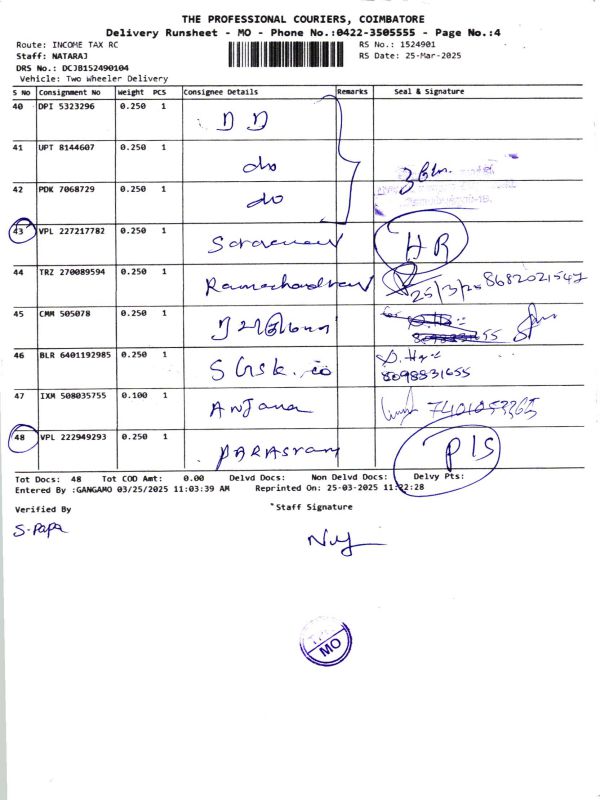 THE PROFESSIONAL COURIERS, COIMBATORE
Delivery Runsheet - MO - Phone No.:0422-3505555 - Page No.:4
Route: INCOME TAX RC RS No.: 1524901
Staff: NATARAJ RS Date: 25-Mar-2025
DRS No.: DCJB152490104
Vehicle: Two Wheeler Delivery
S No Consignment No Weight PCS Consignee Details Remarks Seal & Signature
40 DPI 5323296 0.250 1 D D
41 UPT 8144607 0.250 1 do
42 PDK 7068729 0.250 1 do
43 VPL 227217782 0.250 1 HR
44 TRZ 270089594 0.250 1 Ramachandran 8682021547
25/3/25
45 CMM 505078 0.250 1
46 BLR 6401192985 0.250 1 8098831655
47 IXM 508035755 0.100 1 Anjana 7401053365
48 VPL 222949293 0.250 1 PARASRAM P1S
Tot Docs: 48 Tot COD Amt: 0.00 Delvd Docs: Non Delvd Docs: Delvy Pts:
Entered By :GANGAMO 03/25/2025 11:03:39 AM Reprinted On: 25-03-2025 11:22:28
Verified By Staff Signature
S. Papa
MO